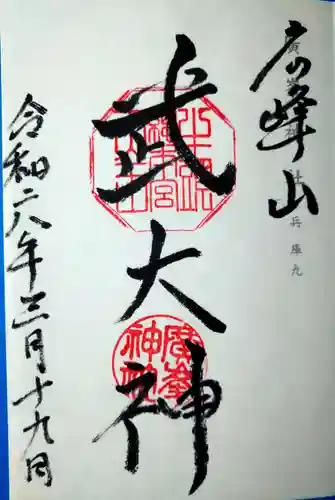 広峰山
廣峯神社 兵庫九
武大神
廣峯神社
令和二八年三月十九日